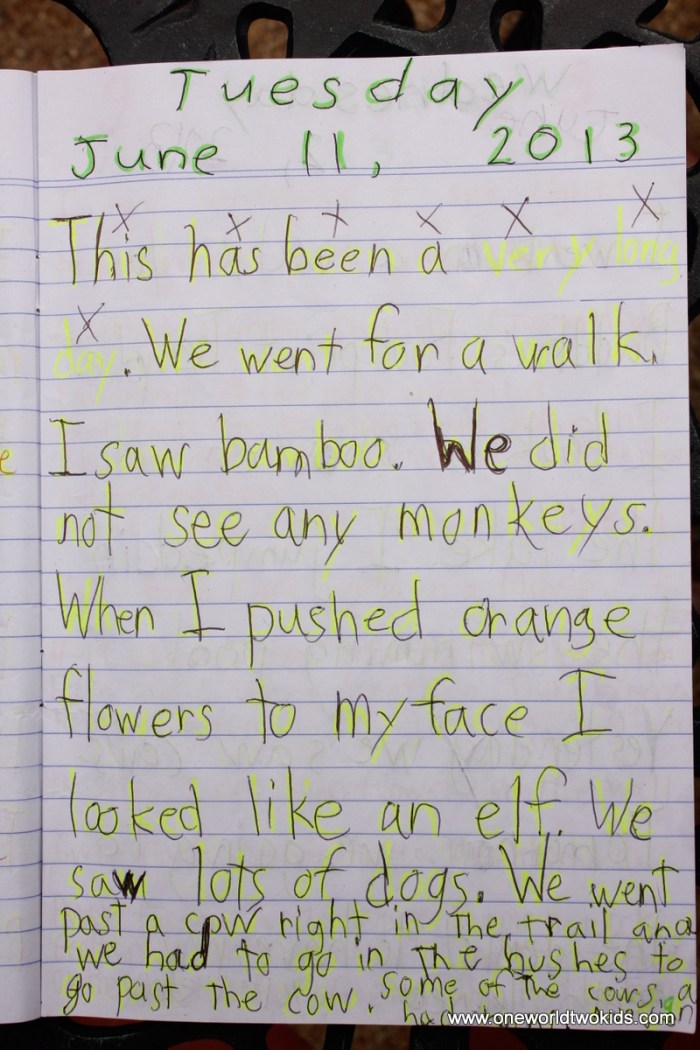 Tuesday
June 11, 2013
This has been a very long
day. We went for a walk.
I saw bamboo. We did
not see any monkeys.
When I pushed orange
flowers to my face I
looked like an elf. We
saw lots of dogs. We went
past a cow right in the trail and
we had to go in the bushes to
go past the cow. some of the cows
had
www.oneworldtwokids.com
e